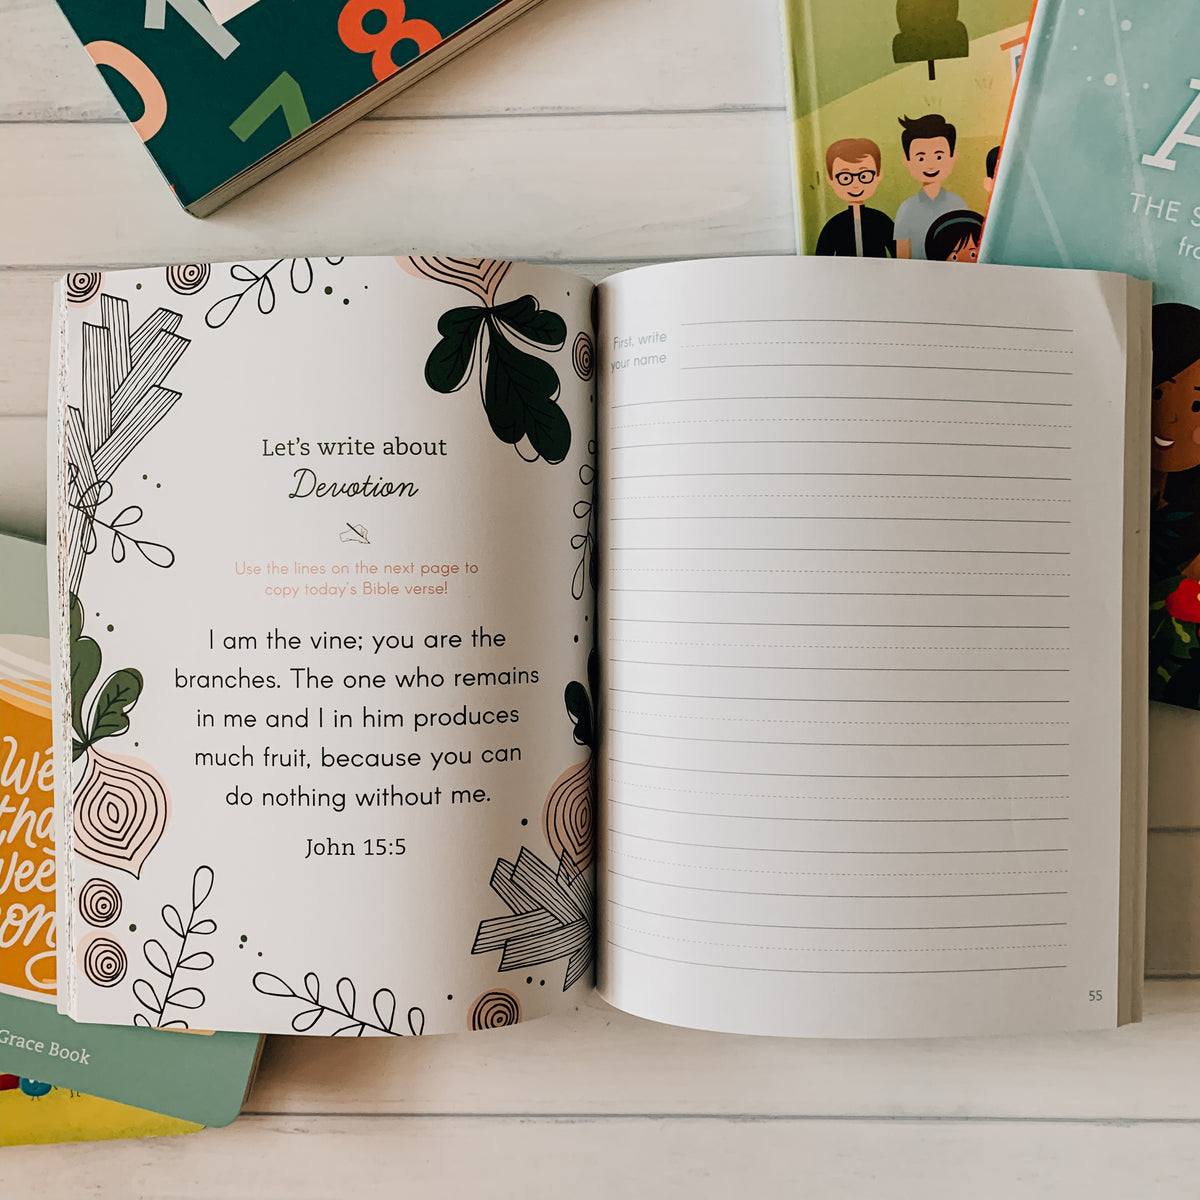 0 1 8
7
THE
Let's write about
Devotion
Use the lines on the next page to
copy today's Bible verse!
I am the vine; you are the
branches. The one who remains
in me and I in him produces
much fruit, because you can
do nothing without me.
John 15:5
First, write
your name
55
Grace Book